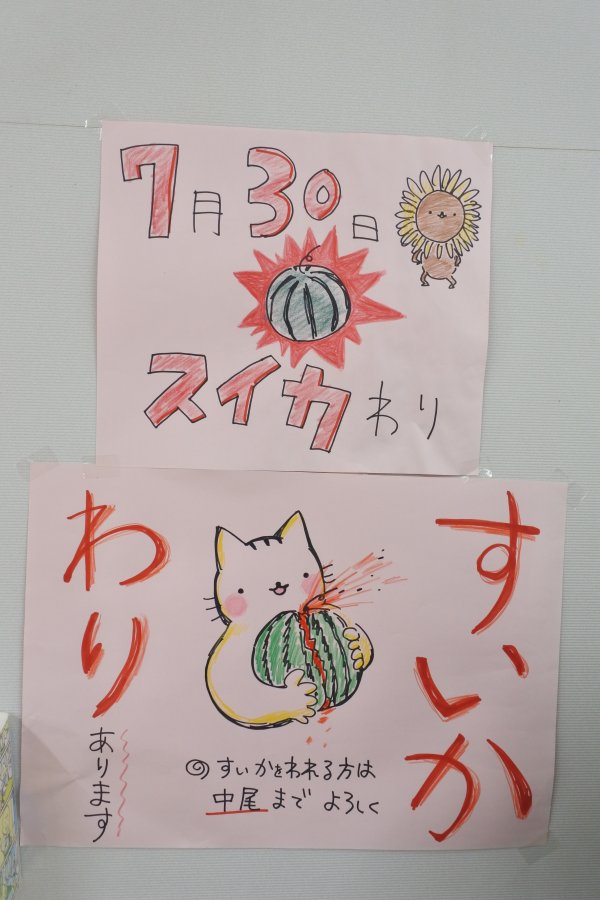 7月30日
スイカわり
すいか
わり
あります
◎すいかをわれる方は
中尾までよろしく